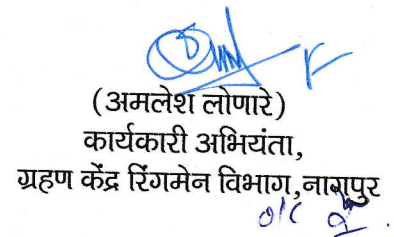 (अमलेश लोणारे)
कार्यकारी अभियंता,
ग्रहण केंद्र रिंगमेन विभाग,नागपुर
o/c